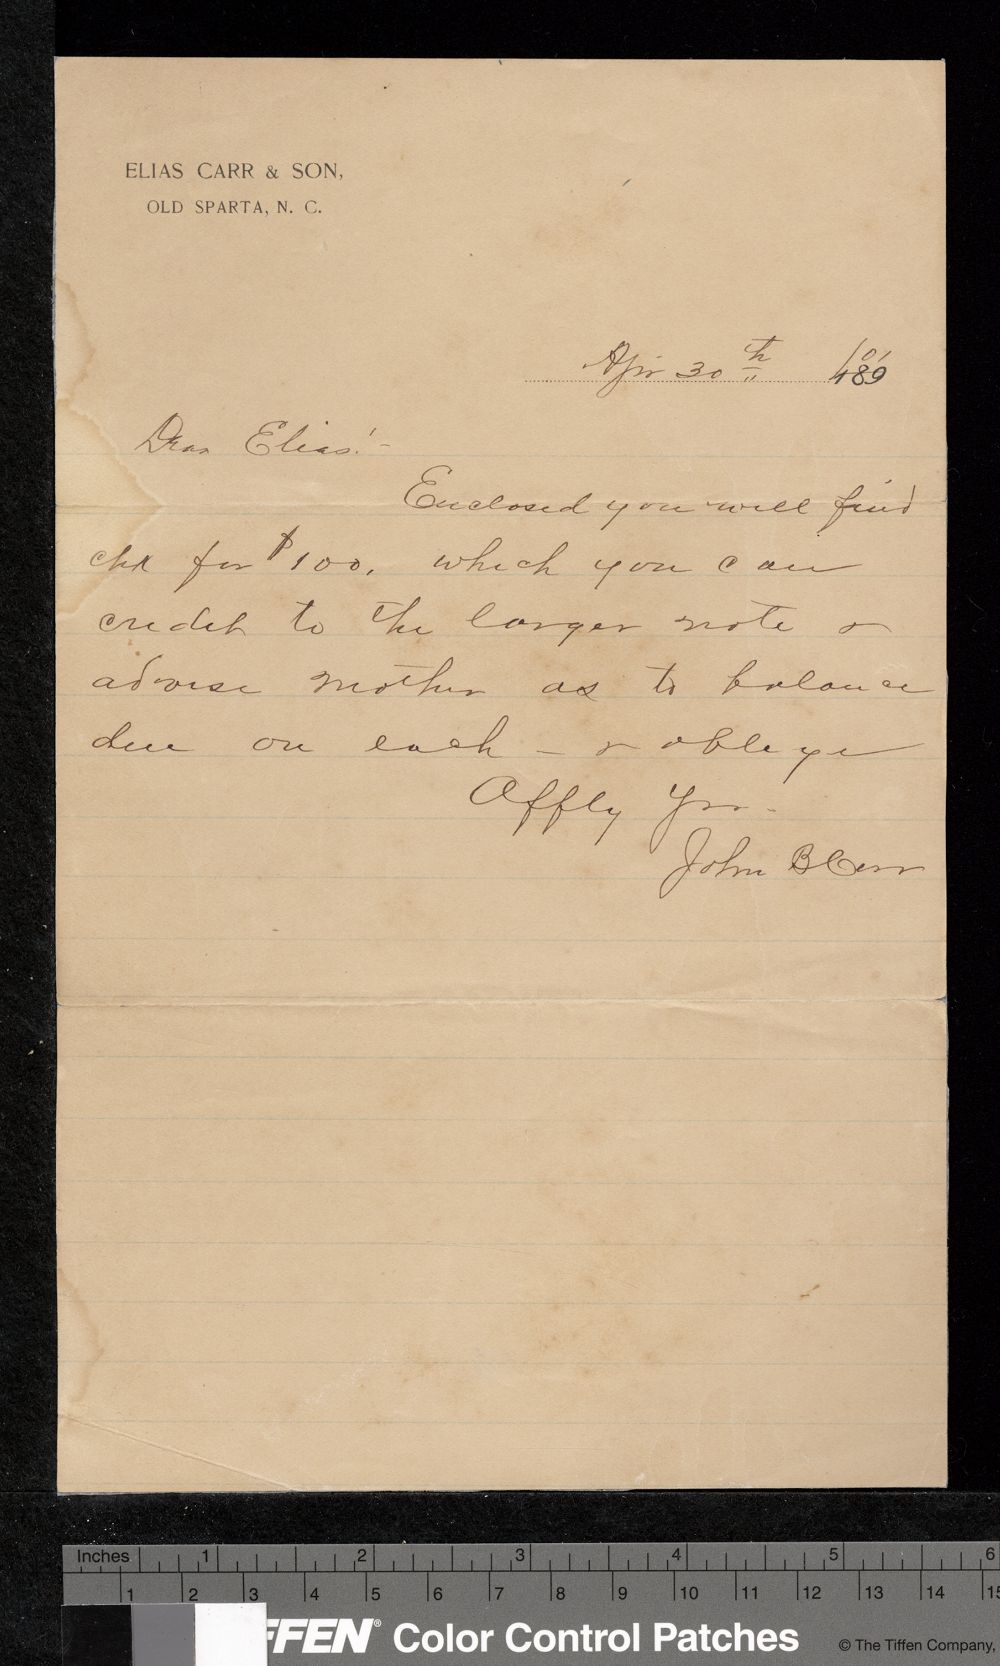 ELIAS CARR & SON,
OLD SPARTA, N. C.
Apr 30th 189 '01
Dear Elias:-
Enclosed you will find
chk for $100. which you can
credit to the larger note &
advise mother as to balance
due on each - & oblige
Affly Yrs -
John B Carr
Inches 1 2 3 4 5 6
1 2 3 4 5 6 7 8 9 10 11 12 13 14 15
FFEN® Color Control Patches © The Tiffen Company,